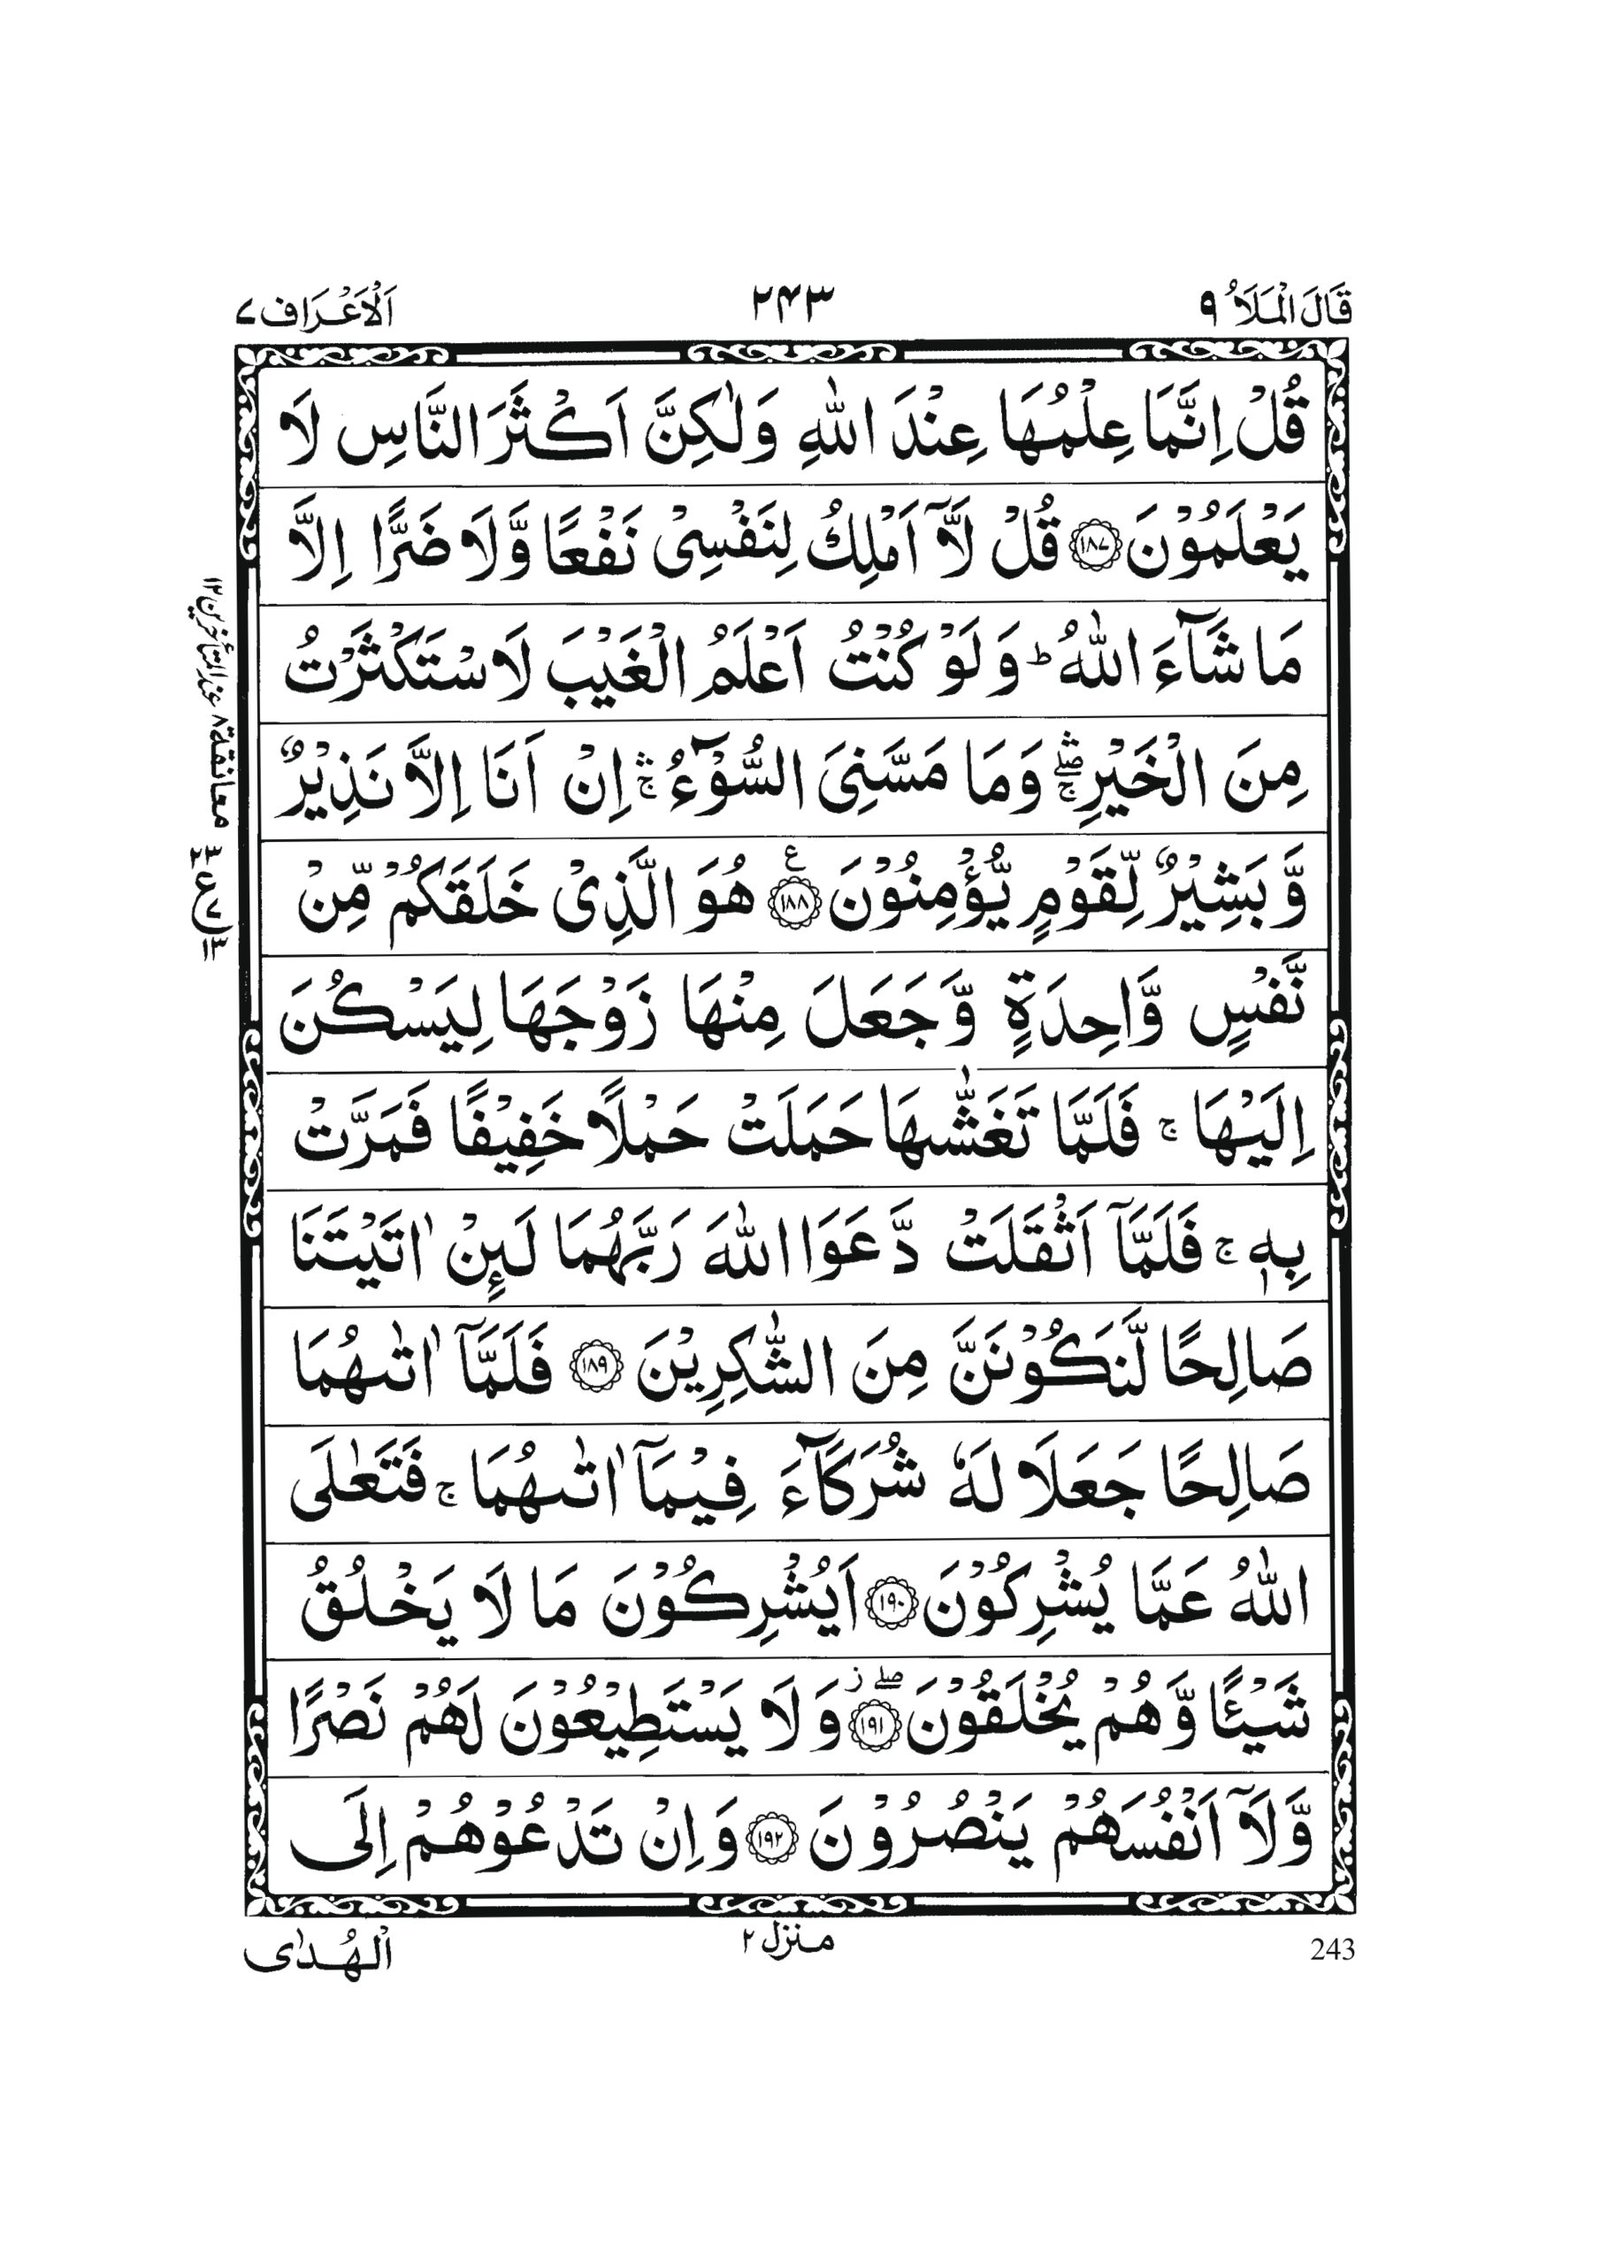 قَالَ الْمَلَاُ ۹
۲۴۳
اَلْاَعْرَاف ۷
قُلْ اِنَّمَا عِلْمُهَا عِنْدَ اللّٰهِ وَلٰكِنَّ اَكْثَرَ النَّاسِ لَا
يَعْلَمُوْنَ ﴿۱۸۷﴾ قُلْ لَّاۤ اَمْلِكُ لِنَفْسِىْ نَفْعًا وَّلَا ضَرًّا اِلَّا
مَا شَآءَ اللّٰهُ ؕ وَلَوْ كُنْتُ اَعْلَمُ الْغَيْبَ لَاسْتَكْثَرْتُ
مِنَ الْخَيْرِ ۛۖۚ وَمَا مَسَّنِىَ السُّوْٓءُ ۛۚ اِنْ اَنَا اِلَّا نَذِيْرٌ
وَّبَشِيْرٌ لِّقَوْمٍ يُّؤْمِنُوْنَ ﴿۱۸۸﴾ ع هُوَ الَّذِىْ خَلَقَكُمْ مِّنْ
نَّفْسٍ وَّاحِدَةٍ وَّجَعَلَ مِنْهَا زَوْجَهَا لِيَسْكُنَ
اِلَيْهَا ۚ فَلَمَّا تَغَشّٰٮهَا حَمَلَتْ حَمْلًا خَفِيْفًا فَمَرَّتْ
بِهٖ ۚ فَلَمَّاۤ اَثْقَلَتْ دَّعَوَا اللّٰهَ رَبَّهُمَا لَٮِٕنْ اٰتَيْتَنَا
صَالِحًا لَّنَكُوْنَنَّ مِنَ الشّٰكِرِيْنَ ﴿۱۸۹﴾ فَلَمَّاۤ اٰتٰٮهُمَا
صَالِحًا جَعَلَا لَهٗ شُرَكَآءَ فِيْمَاۤ اٰتٰٮهُمَا ۚ فَتَعٰلَى
اللّٰهُ عَمَّا يُشْرِكُوْنَ ﴿۱۹۰﴾ اَيُشْرِكُوْنَ مَا لَا يَخْلُقُ
شَيْـًٔـا وَّهُمْ يُخْلَقُوْنَ ﴿۱۹۱﴾ ۖز وَلَا يَسْتَطِيْعُوْنَ لَهُمْ نَصْرًا
وَّلَاۤ اَنْفُسَهُمْ يَنْصُرُوْنَ ﴿۱۹۲﴾ وَاِنْ تَدْعُوْهُمْ اِلَى
معانقة ۸ عند المتأخرين ۱۲
الْهُدٰى
منزل ۲
243